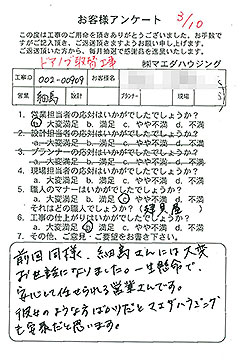 お客様アンケート
3/10
この度は工事のご用命を頂きありがとうございました。お手数で
すがご記入頂き、ご返送頂きますようお願い申し上げます。
ご返送頂いた方から、毎月抽選で感謝品を進呈いたします。
ドアノブ取替工事 ㈱マエダハウジング
工事ID 002-00909 お客様名
営業 細島 設計 プランナー 現場担当
1. 営業担当者の応対はいかがでしたでしょうか?
a. 大変満足 b. 満足 c. やや不満 d. 不満
2. 設計担当者の応対はいかがでしたでしょうか?
a. 大変満足 b. 満足 c. やや不満 d. 不満
3. プランナーの応対はいかがでしたでしょうか?
a. 大変満足 b. 満足 c. やや不満 d. 不満
4. 現場担当者の応対はいかがでしたでしょうか?
a. 大変満足 b. 満足 c. やや不満 d. 不満
5. 職人のマナーはいかがでしたでしょうか?
a. 大変満足 b. 満足 c. やや不満 d. 不満
それはどの職人でしょうか?(建具屋)
6. 工事の仕上がりはいかがでしたでしょうか?
a. 大変満足 b. 満足 c. やや不満 d. 不満
7. その他、ご意見・ご要望をお書き下さい。
前回同様、細島さんには大変
お世話になりました。一生懸命で、
安心して任せられる営業さんです。
彼のような方ばかりだとマエダハウジング
も安泰だと思います。